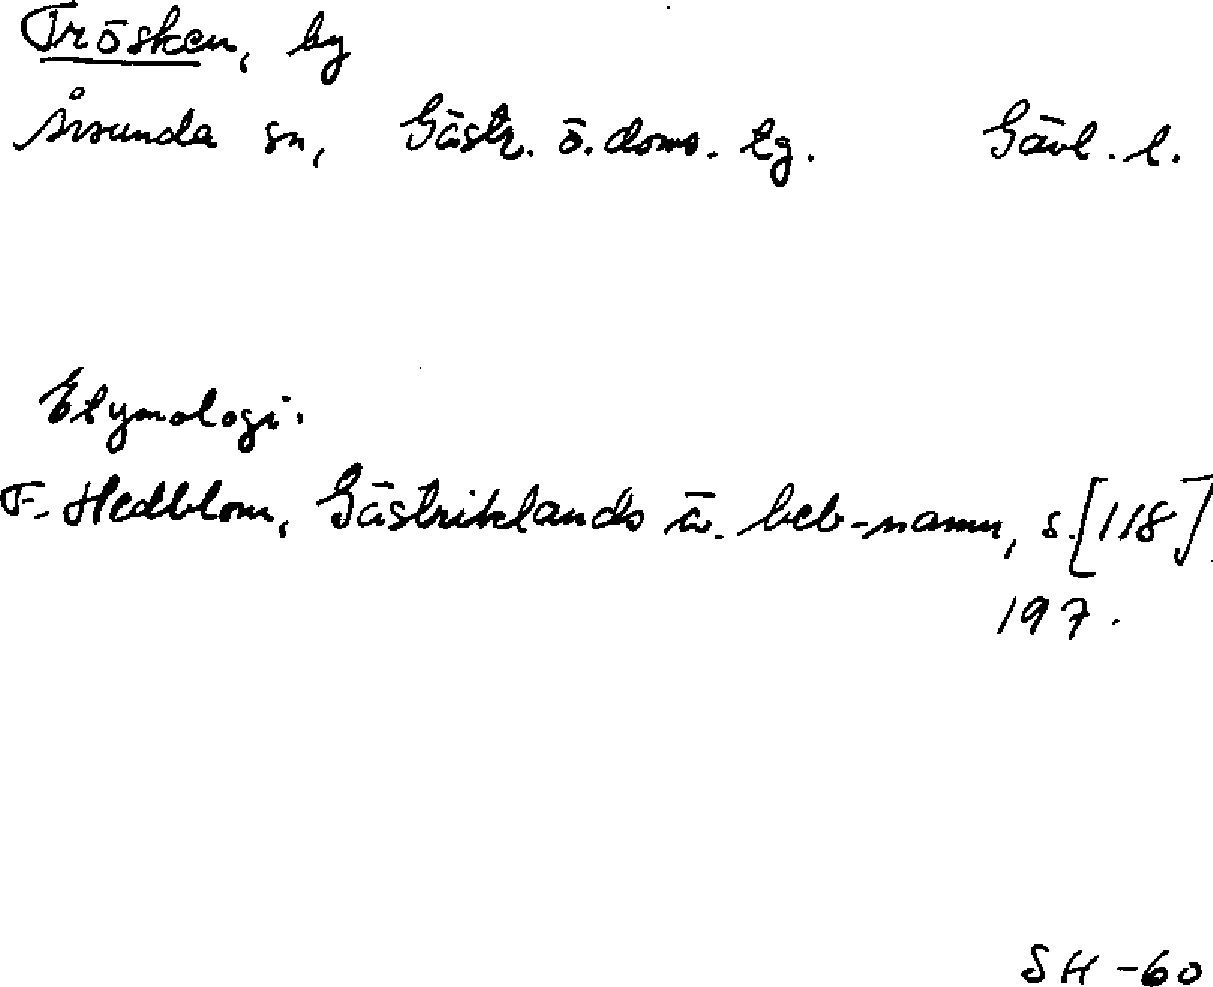 Trösken, by
Årsunda sn, Gästr. ö. doms. tg. Gävl. l.
Etymologi.
F. Hedblom, Gästriklands ä. beb-namn, s. [118]
197.
SH -60